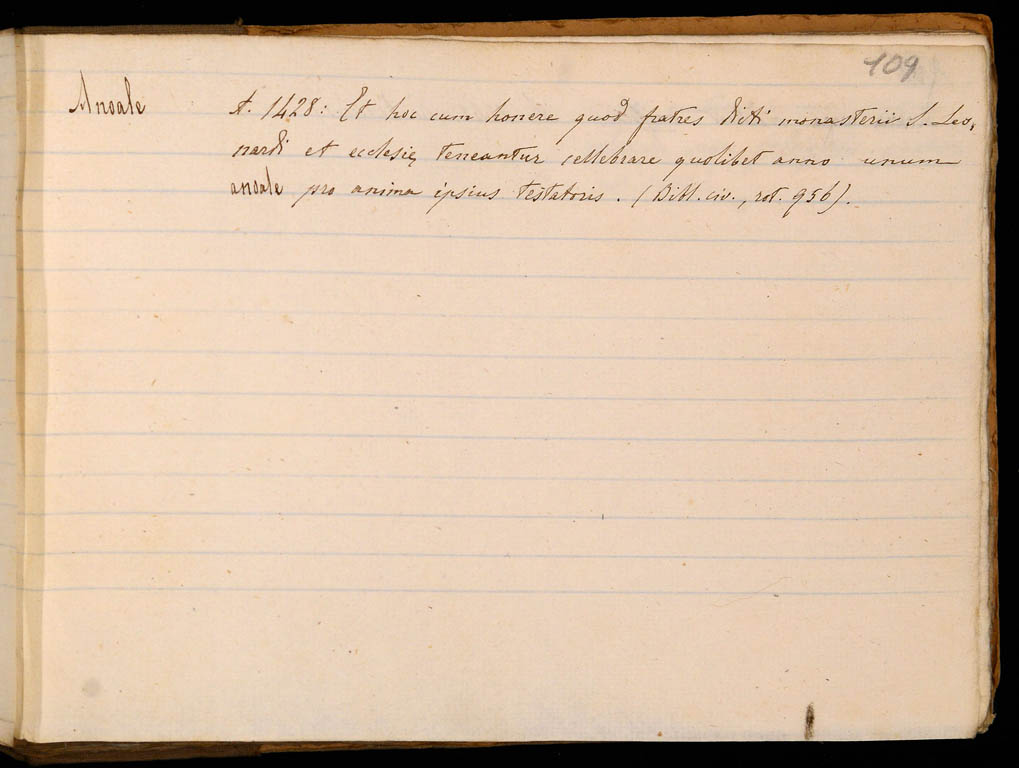 109
Anoale A. 1428: Et hoc cum honere quod fratres dicti monasterii S. Leo-
nardi et ecclesię teneantur cellebrare quolibet anno unum
anoale pro anima ipsius testatoris. (Bibl. civ., rot. 956).